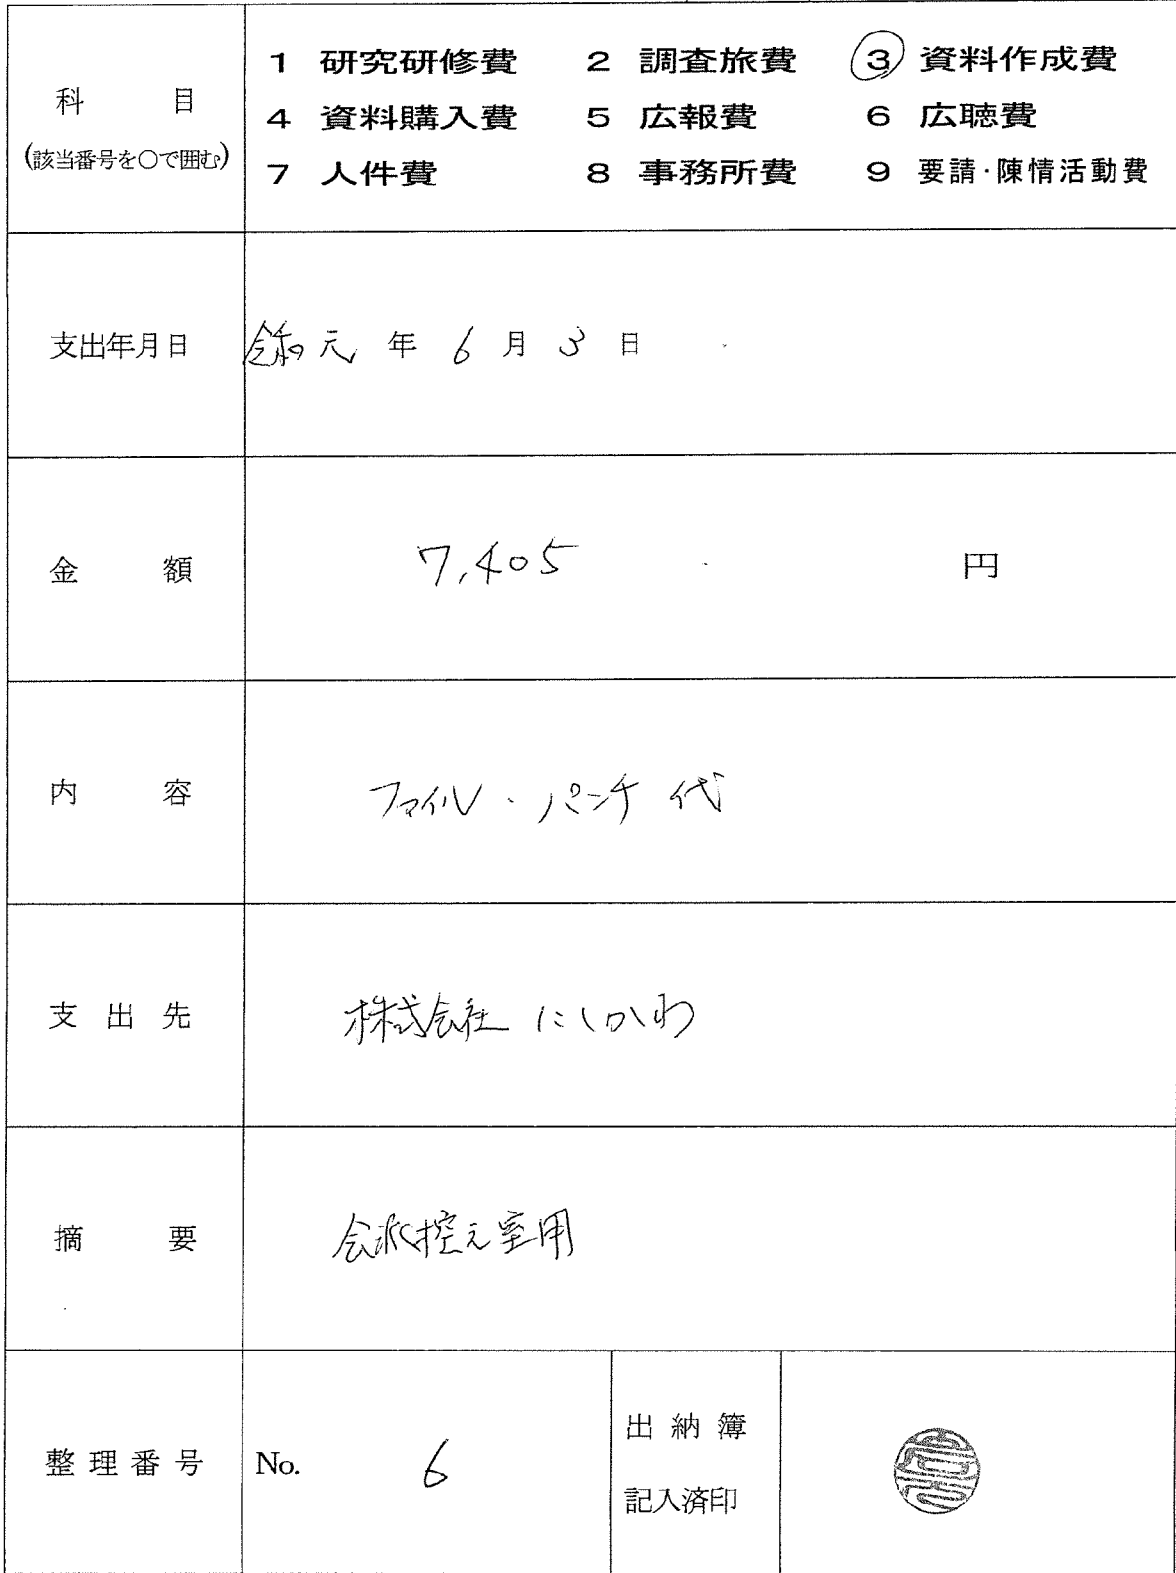 科 目
(該当番号を○で囲む)
1 研究研修費 2 調査旅費 3 資料作成費
4 資料購入費 5 広報費 6 広聴費
7 人件費 8 事務所費 9 要請・陳情活動費
支出年月日 令和元年 6月 3日
金 額 7,405 円
内 容 ファイル・パンチ代
支 出 先 株式会社 にしかわ
摘 要 会派控え室用
整理番号 No. 6
出納簿
記入済印